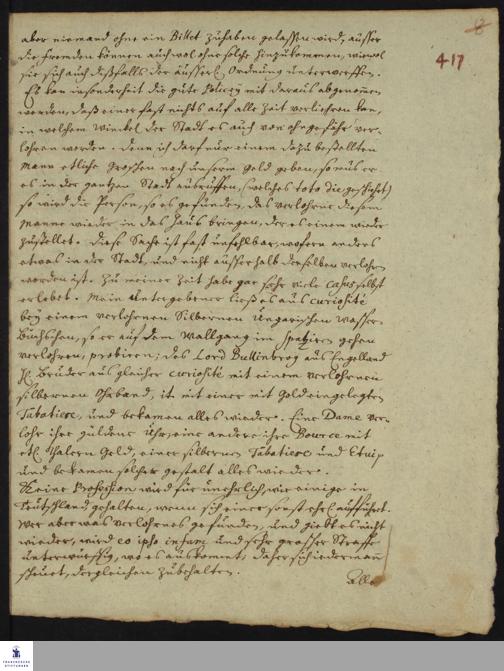 417
aber niemand ohne ein Billet zuhaben gelassen wird, ausser
die fremden können auch wol ohne solche hinzukommen, wiewol
sie sich auch desfalls der äusserl. Ordnung unterwerffen.
Es kan insonderheit die gute Policey mit daraus abgenommen
werden, daß einer fast nichts auf alle Zeit verliehren kan,
in welchem Winckel der Stadt es auch von ohngefähr ver-
lohren worden. Denn ich darf nur einem dazu bestellten
Mann etliche Groschen nach unserm Geld geben, so muß er
es in der gantzen Stadt ausruffen, (welches toto die geschicht)
so wird die Person, so es gefunden, das verlohrne diesem
Manne wieder in das Haus bringen, der es einem wieder
zustellet. Diese Sache ist fast unfehlbar, wofern anders
etwas in der Stadt, und nicht ausserhalb derselben verlohren
worden ist. Zu meiner Zeit habe gar sehr viele Casus selbst
erlebet. Mein Untergebener ließ es aus curiosité
bey einem verlohrenen Silbernen Ungarischen Wasser-
Büchschen, so er auf dem Wallgang im spatzieren gehen
verlohren, probiren; des Lord Bullinbrog aus Engelland
H. Bruder aus gleicher curiosité mit einem verlohrnen
silbernen Ohrband, it. mit einer mit Gold eingelegten
Tabatiere, und bekamen alles wieder. Eine Dame ver-
lohr ihre güldene Uhr, eine andere ihre Bource mit
etl. Thalern Geld, einer silbernen Tabatiere und Etuip
und bekamen solcher gestalt alles wieder.
Keine Profession wird für unehrlich, wie einige in
Teutschland, gehalten, wenn sich einer sonst ehrl. aufführt.
Wer aber was verlohrnes gefunden, und giebt es nicht
wieder, wird eo ipso infam und sehr grosser Straffe
unterwürffig, wo es auskomt; daher sich iederman
scheuet, dergleichen zubehalten.
Alle
FRANCKESCHE STIFTUNGEN